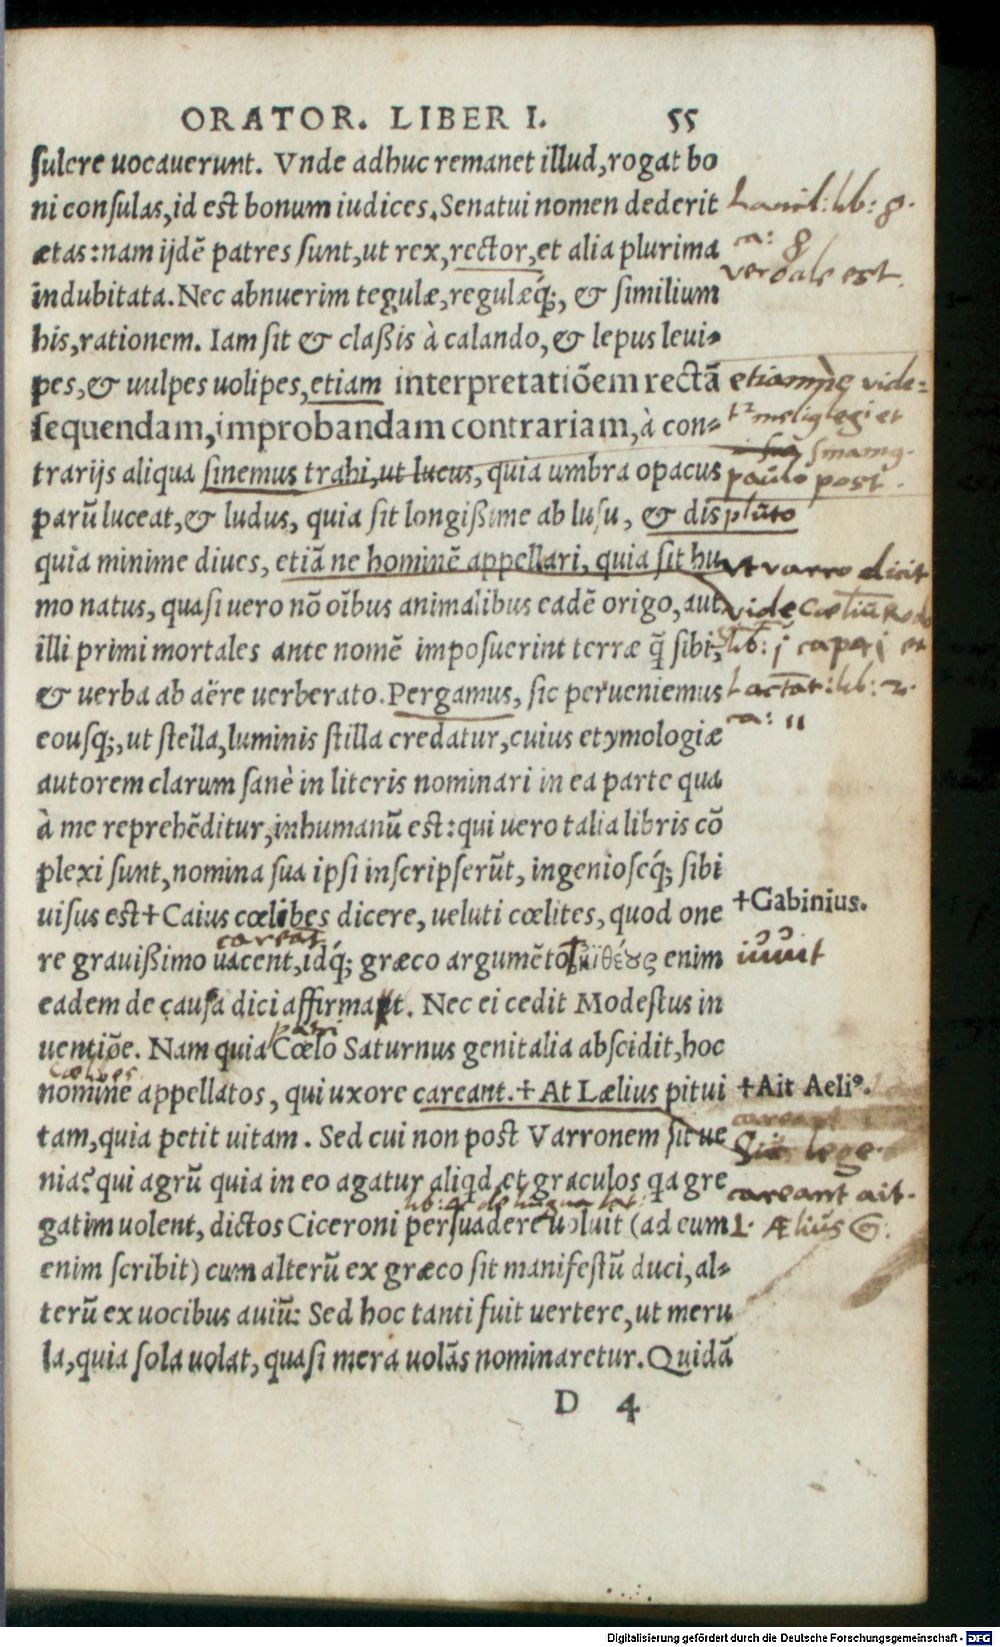 ORATOR. LIBER I. 55
sulere uocauerunt. Vnde adhuc remanet illud, rogat bo
ni consulas, id est bonum iudices. Senatui nomen dederit
ætas: nam ijdē patres sunt, ut rex, rector, et alia plurima
indubitata. Nec abnuerim tegulæ, regulæq́;, & similium
his, rationem. Iam sit & claßis à calando, & lepus leui-
pes, & uulpes uolipes, etiam interpretatiōem rectā
sequendam, improbandam contrariam, à con-
trarijs aliqua sinemus trahi, ut lucus, quia umbra opacus
parū luceat, & ludus, quia sit longißime ab lusu, & dis
quia minime diues, etiā ne hominē appellari, quia sit hu
mo natus, quasi uero nō oībus animalibus eadē origo, aut
illi primi mortales ante nomē imposuerint terræ q̄ sibi,
& uerba ab aëre uerberato. Pergamus, sic perueniemus
eousq;, ut stella, luminis stilla credatur, cuius etymologiæ
autorem clarum sanè in literis nominari in ea parte qua
à me reprehēditur, inhumanū est: qui uero talia libris cō
plexi sunt, nomina sua ipsi inscripserūt, ingenioseq́; sibi
uisus est + Caius cœlibes dicere, ueluti cœlites, quod one
re grauißimo uacent, idq́; græco argumēto enim
eadem de causa dici affirmat. Nec ei cedit Modestus in
uentiōe. Nam quia Cœlo Saturnus genitalia abscidit, hoc
nomine appellatos, qui uxore careant. + At Lælius pitui
tam, quia petit uitam. Sed cui non post Varronem sit ue
nia? qui agrū quia in eo agatur aliqd, et graculos qa gre
gatim uolent, dictos Ciceroni persuadere uoluit (ad eum
enim scribit) cum alterū ex græco sit manifestū duci, al-
terū ex uocibus auiū: Sed hoc tanti fuit uertere, ut meru
la, quia sola uolat, quasi mera uolās nominaretur. Quidā
D 4
verbale est.
paulo post.
ut varro dicit
vide
lib: j caperj et
Lactāt: lib: 2.
a: 11
+Gabinius.
iuuit
careat
cœlibes
+Ait Aeliꝰ.
careant
Sic lege
careant ait.
L. Ælius
Digitalisierung gefördert durch die Deutsche Forschungsgemeinschaft - DFG